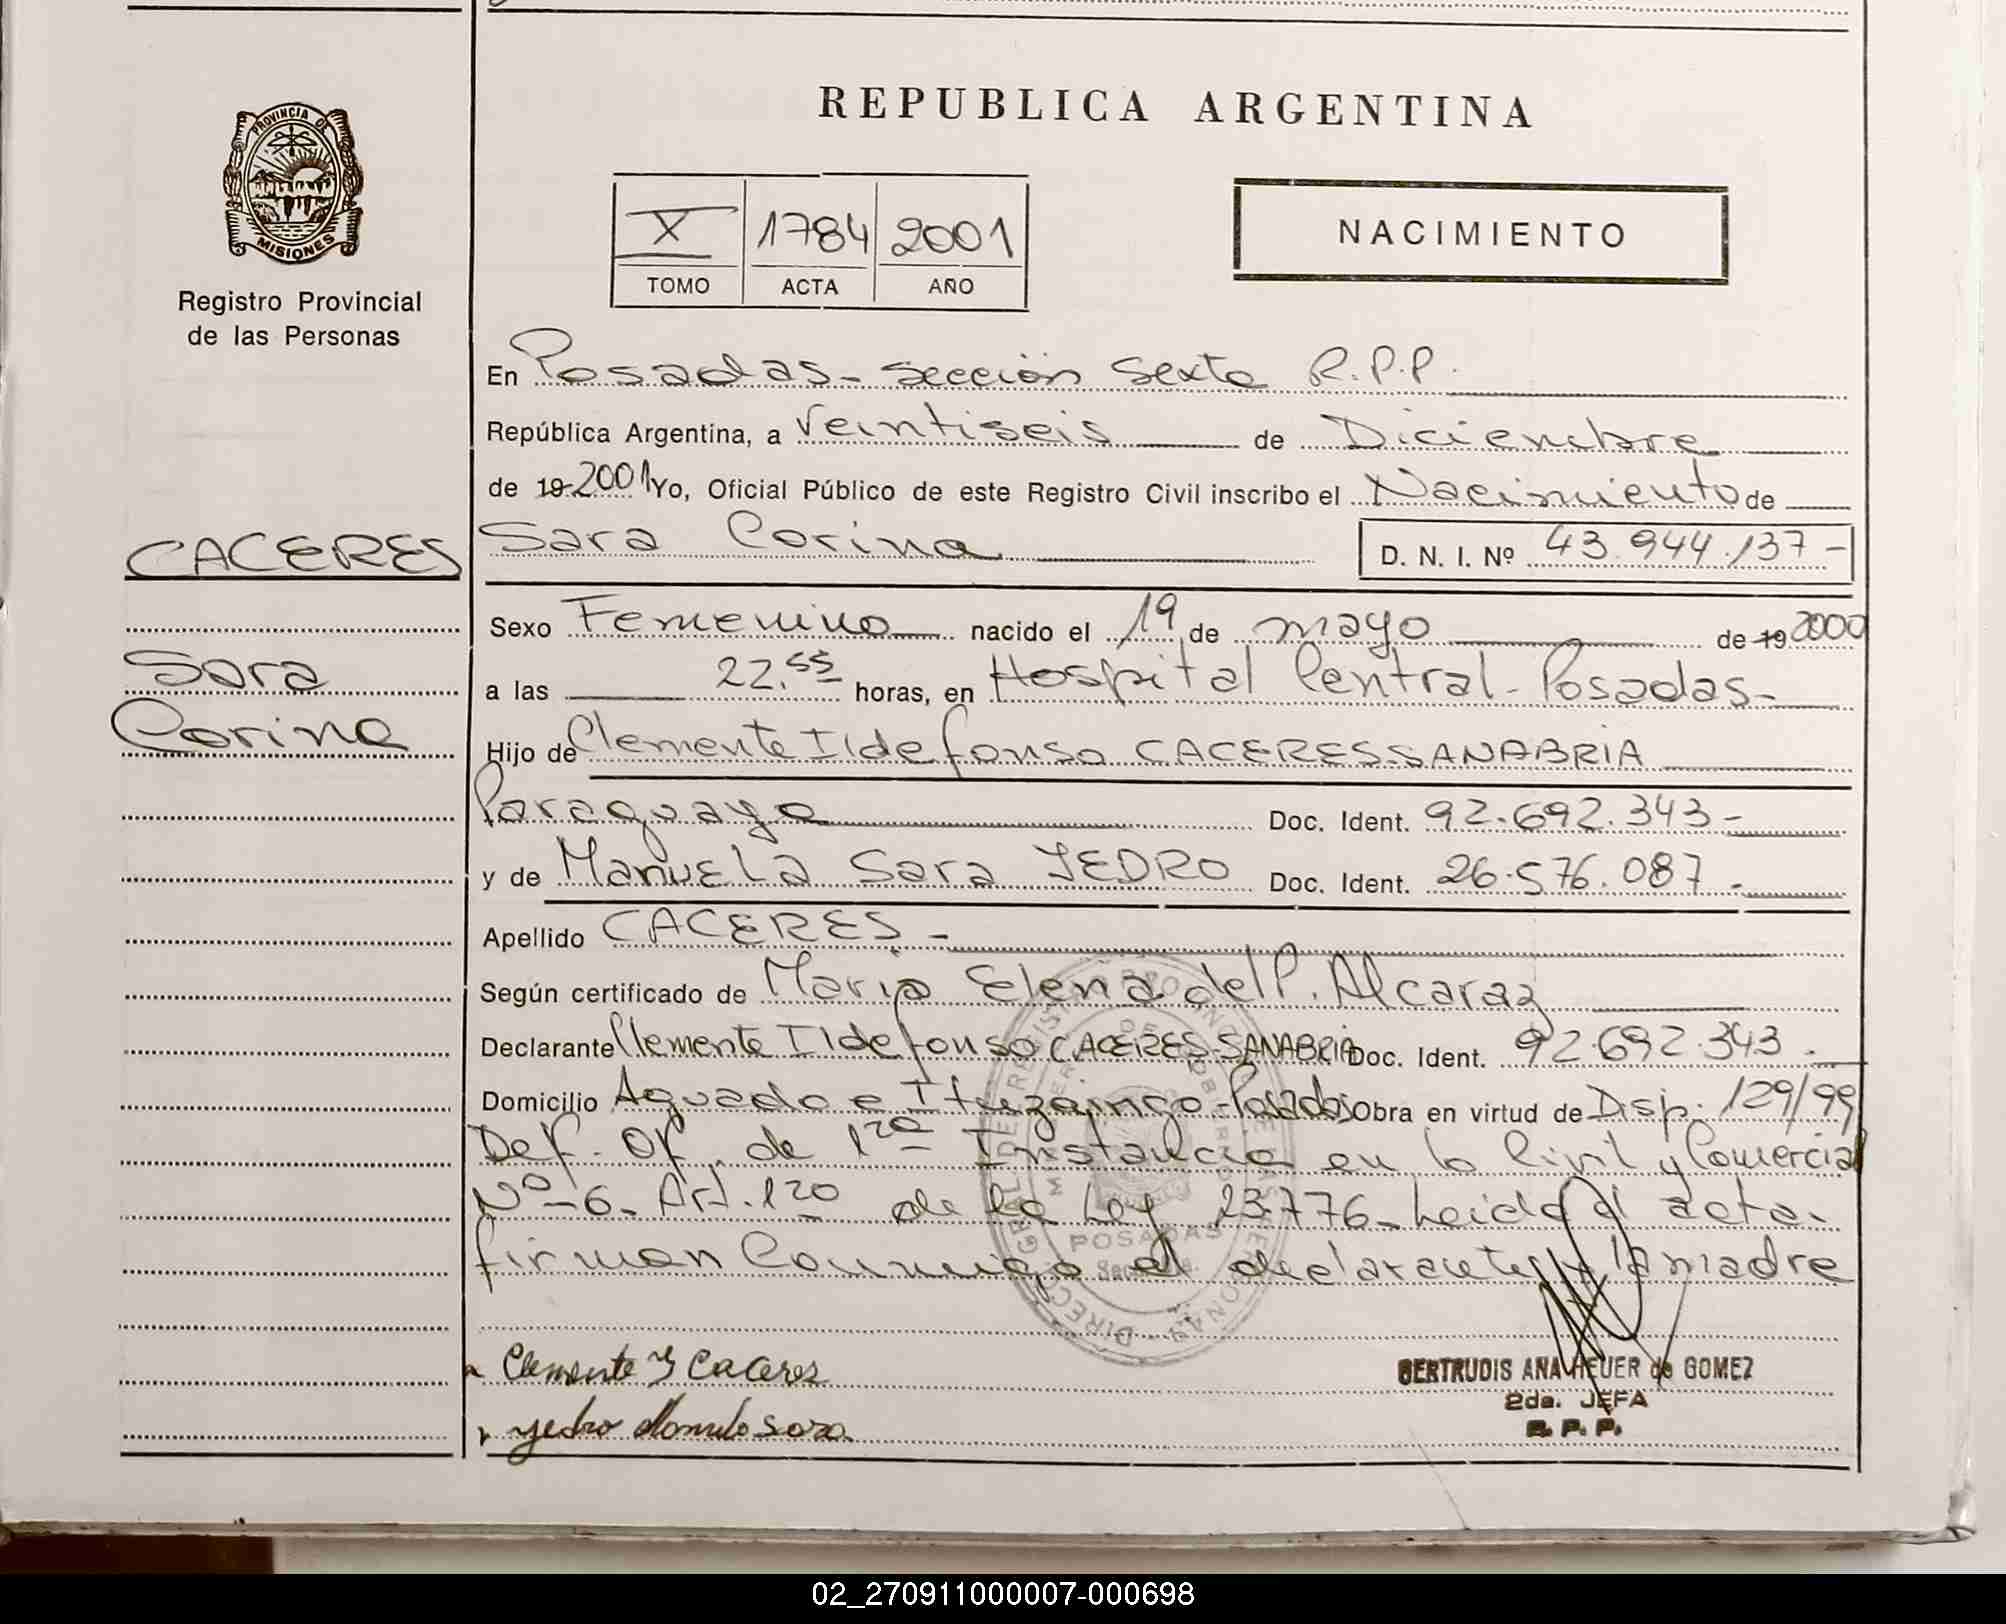 REPUBLICA ARGENTINA
PROVINCIA DE
MISIONES
Registro Provincial
de las Personas
X 1784 2001
TOMO ACTA AÑO
NACIMIENTO
En Posadas - Sección Sexta R.P.P.
República Argentina, a Veintiseis de Diciembre
de 19 2001 Yo, Oficial Público de este Registro Civil inscribo el Nacimiento de
CACERES
Sara Corina
D. N. I. Nº 43.944.137-
Sexo Femenino nacido el 19 de mayo de 19 2000
Sara
a las 22.55 horas, en Hospital Central - Posadas-
Corina
Hijo de Clemente Ildefonso CACERES-SANABRIA
Paraguaya Doc. Ident. 92.692.343-
y de Manuela Sara YEDRO Doc. Ident. 26.576.087.-
Apellido CACERES-
Según certificado de Maria Elena del P. Alcaraz
Declarante Clemente Ildefonso CACERES-SANABRIA Doc. Ident. 92.692.343.-
Domicilio Aguado e Ituzaingo-Posadas Obra en virtud de Disp. 129/99
Def. Of. de 1ra Instancia en lo Civil y Comercial
Nº-6- Art. 1ro de la Ley 23.776- Leida el acta.
firman Conmigo el declarante y la madre
POSADAS
Clemente Y Caceres
Yedro Manuela Sara
GERTRUDIS ANA HEUER de GOMEZ
2da. JEFA
R. P. P.
02_270911000007-000698